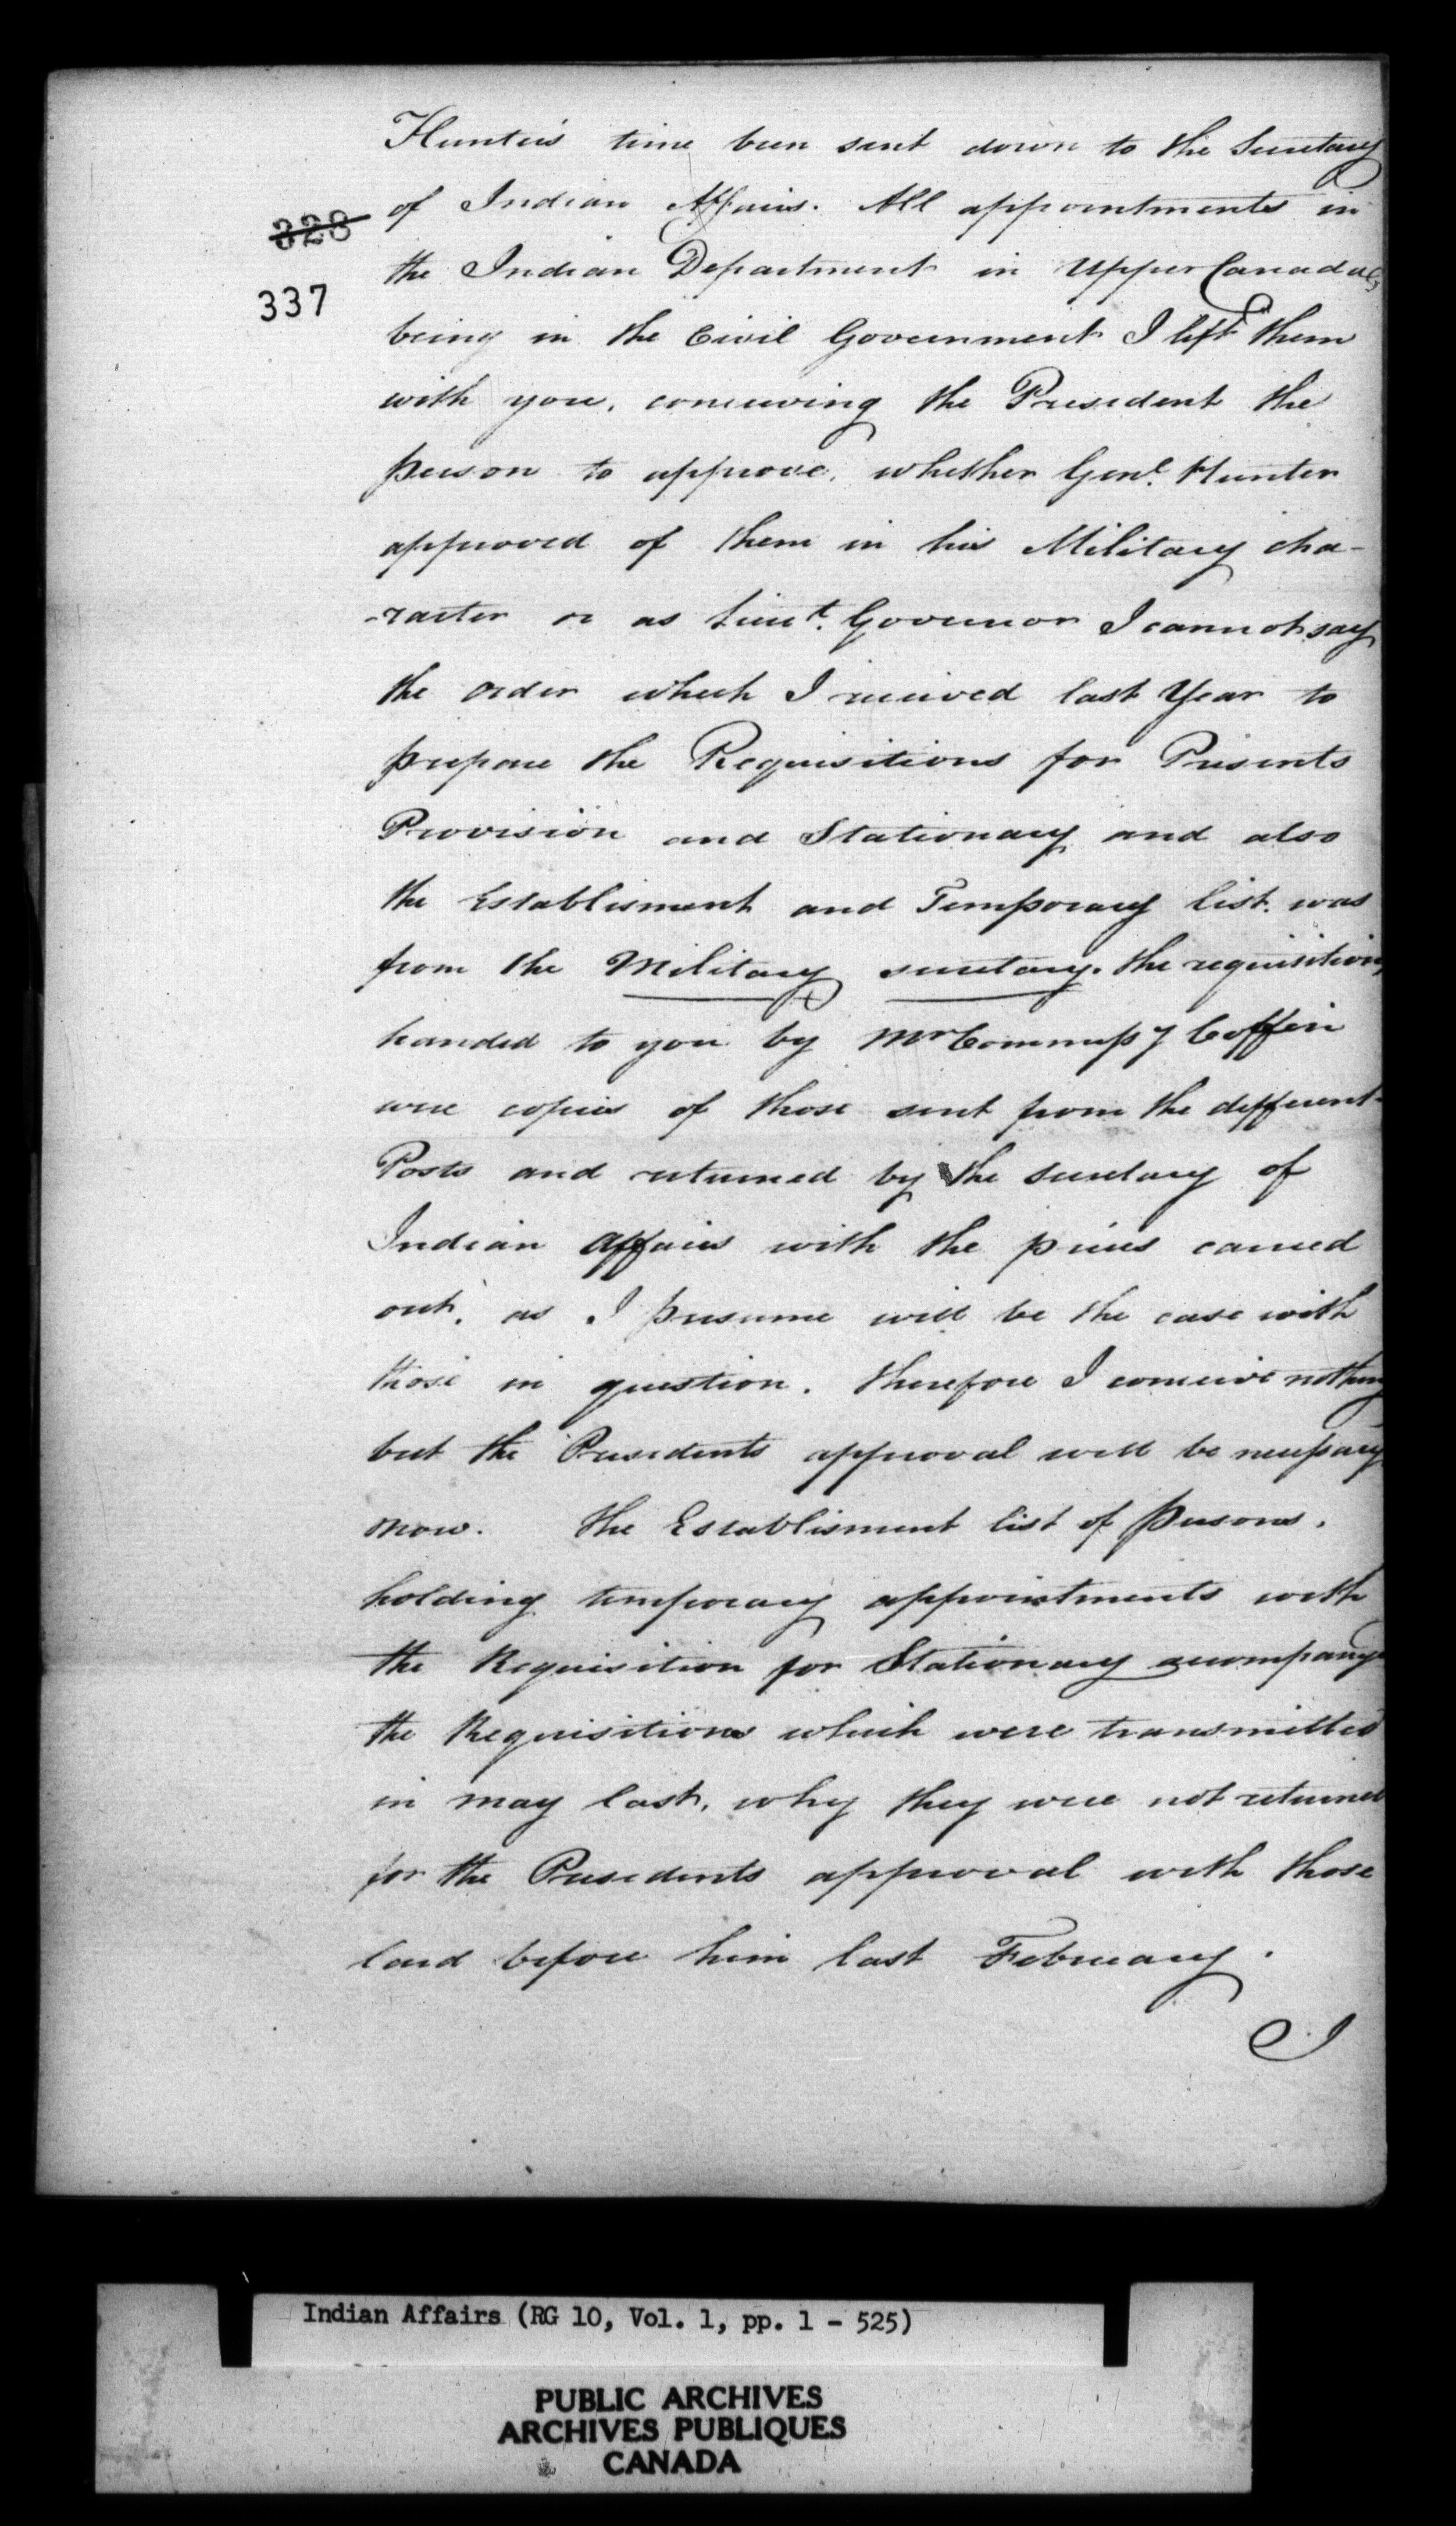 Hunter's time been sent down to the Secretary
328
of Indian Affairs. All appointments in
337
the Indian Department in Upper Canada
being in the Civil Government I left them
with you, conceiving the President the
person to approve, whether Genl. Hunter
approved of them in his Military cha-
-racter or as Lieut. Governor I cannot say
the order which I received last Year to
prepare the Requisitions for Presents
Provision and Stationary and also
the Establisment and Temporary list. was
from the Military secretary. the requisitions
handed to you by Mr Commissy Coffin
were copies of those sent from the different
Posts and returned by the secretary of
Indian affairs with the prices carried
out, as I presume will be the case with
those in question. therefore I conceive nothing
but the Presidents approval will be necessary
now. the Establisment list of persons.
holding temporary appointments with
the Requisition for Stationary accompany
the Requisitions which were transmitted
in may last, why they were not returned
for the Presidents approval with those
laid before him last February.
I
Indian Affairs (RG 10, Vol. 1, pp. 1 - 525)
PUBLIC ARCHIVES
ARCHIVES PUBLIQUES
CANADA